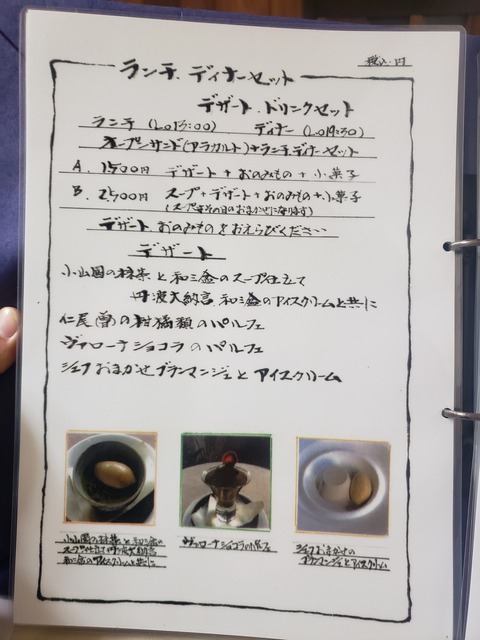 税込・円
ランチ、ディナーセット
デザート、ドリンクセット
ランチ (L.O 15:00) ディナー (L.O 19:30)
オープンサンド(アラカルト)+ランチ、ディナーセット
A. 1500円 デザート + おのみもの + 小菓子
B. 2500円 スープ + デザート + おのみもの + 小菓子
(スープはその日のおまかせになります)
デザート おのみものをおえらびください
デザート
小山園の抹茶と和三盆のスープ仕立て
丹波大納言 和三盆のアイスクリームと共に
仁尾産の柑橘類のパルフェ
ヴァローナショコラのパルフェ
シェフおまかせブランマンジェとアイスクリーム
小山園の抹茶と和三盆の
スープ仕立て丹波大納言
和三盆のアイスクリームと共に
ヴァローナショコラのパルフェ
シェフおまかせの
ブランマンジェとアイスクリーム